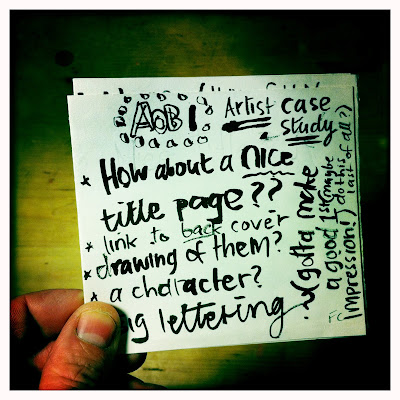 AOB 1
Artist case
study
* How about a nice
title page??
* link to back cover
* drawing of them?
* a character?
lettering
(gotta make
a good 1st
impression!)
maybe
do this
last of all?)
FC